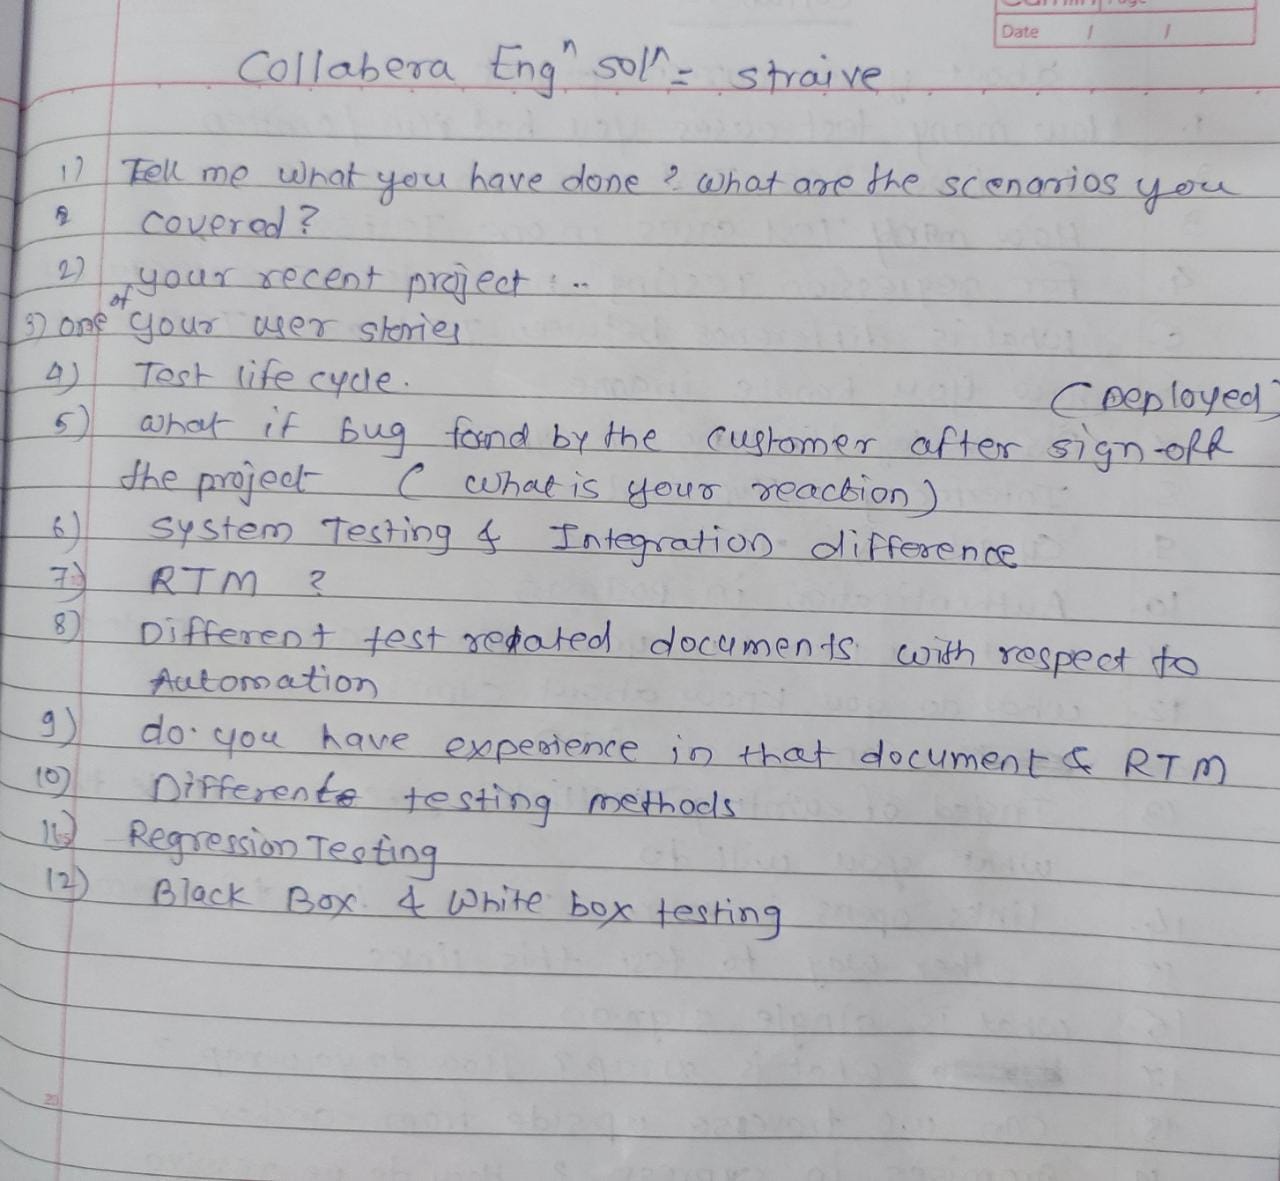 Date / /
Collabera Engⁿ solⁿ = straive
1) Tell me what you have done ? what are the scenarios you
covered?
2) your recent project : ..
3) one of your user stories
4) Test life cycle.
(Deployed)
5) what if bug found by the customer after sign-off
the project ( what is your reaction)
6) System Testing & Integration difference
7) RTM ?
8) Different test related documents with respect to
Automation
9) do you have experience in that document & RTM
10) Different testing methods
11) Regression Testing
12) Black Box & White box testing
20